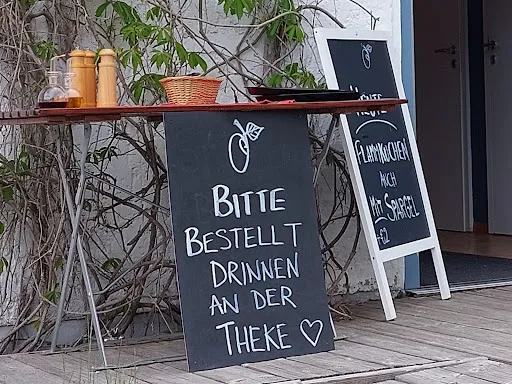 BITTE
BESTELLT
DRINNEN
AN DER
THEKE ♡
HEUTE
FLAMMKUCHEN
AUCH
MIT SPARGEL